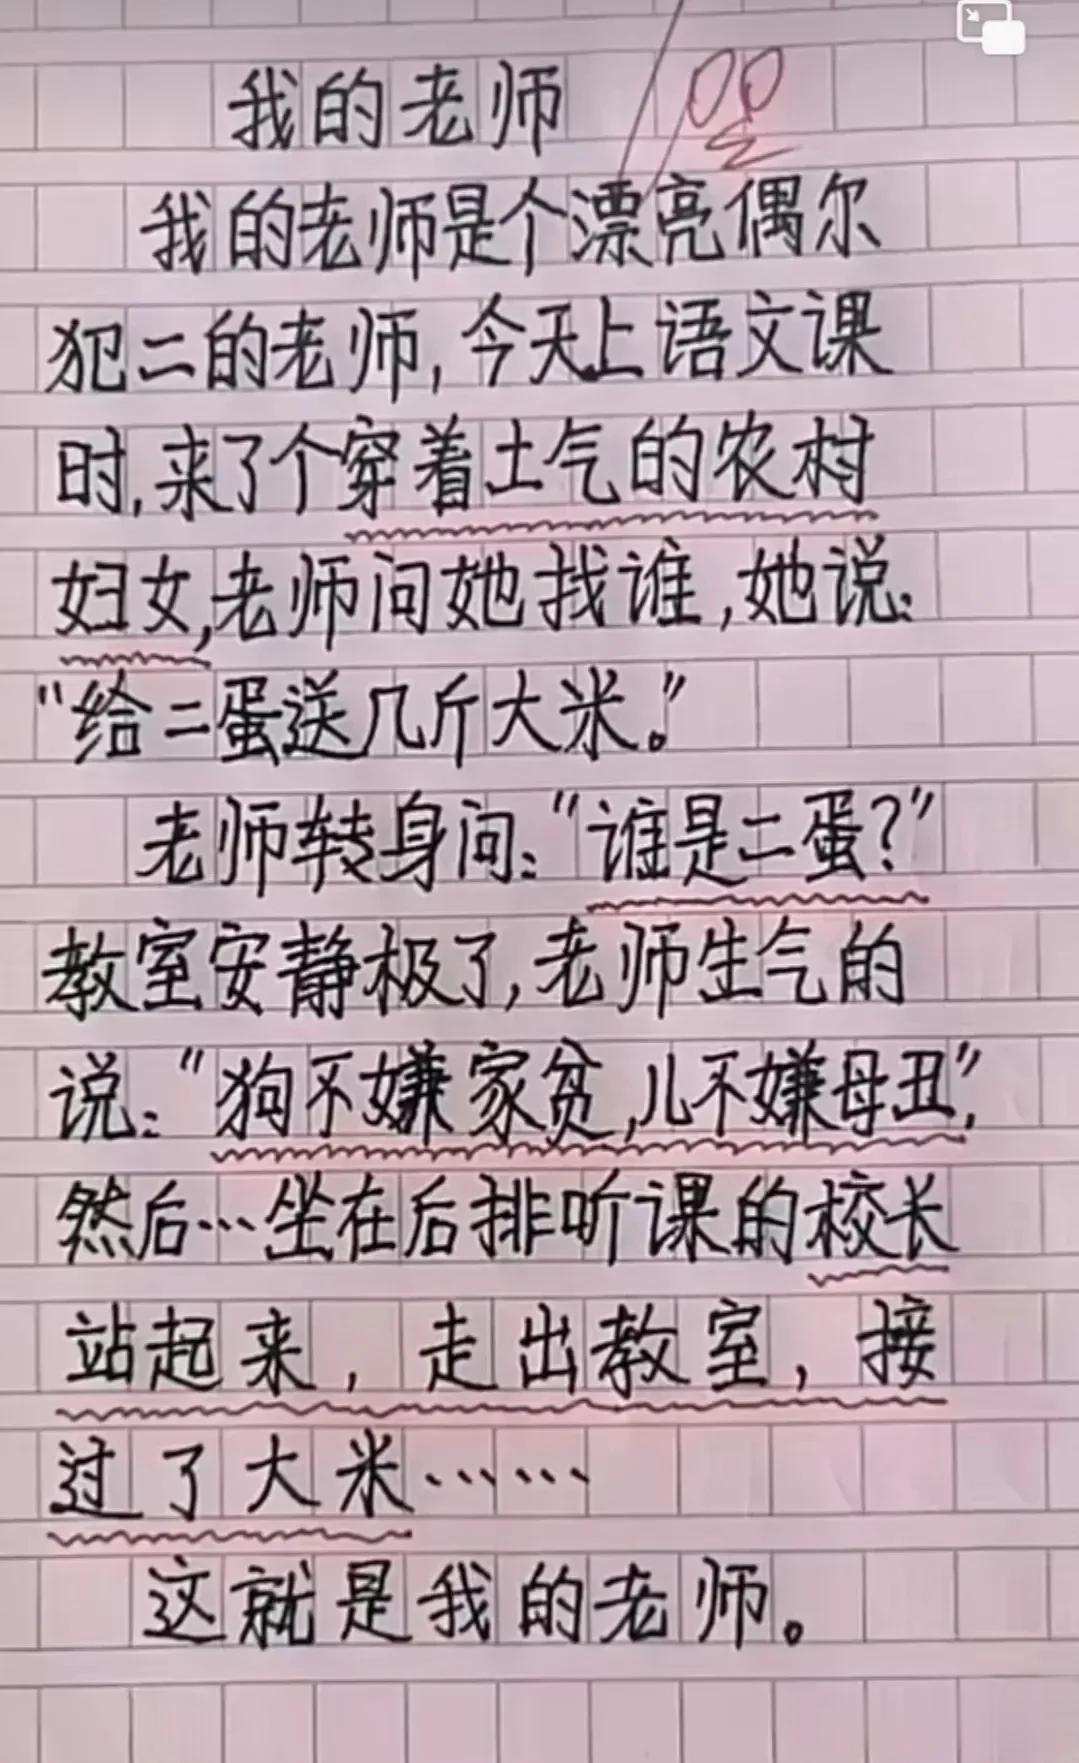 我的老师 100
我的老师是个漂亮偶尔
犯二的老师,今天上语文课
时,来了个穿着土气的农村
妇女,老师问她找谁,她说:
“给二蛋送几斤大米。”
老师转身问:“谁是二蛋?”
教室安静极了,老师生气的
说:“狗不嫌家贫,儿不嫌母丑”,
然后…坐在后排听课的校长
站起来,走出教室,接
过了大米……
这就是我的老师。